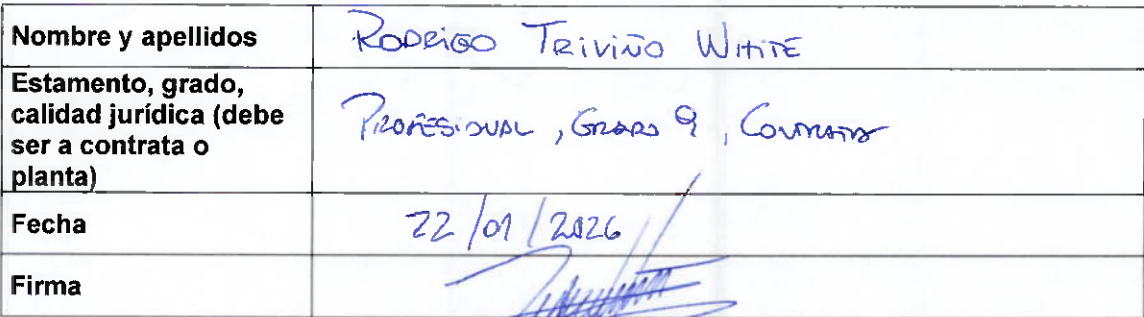 Nombre y apellidos
RODRIGO TRIVIÑO WHITE
Estamento, grado,
calidad jurídica (debe
ser a contrata o
planta)
PROFESIONAL, GRADO 9, CONTRATA
Fecha
22/01/2026
Firma